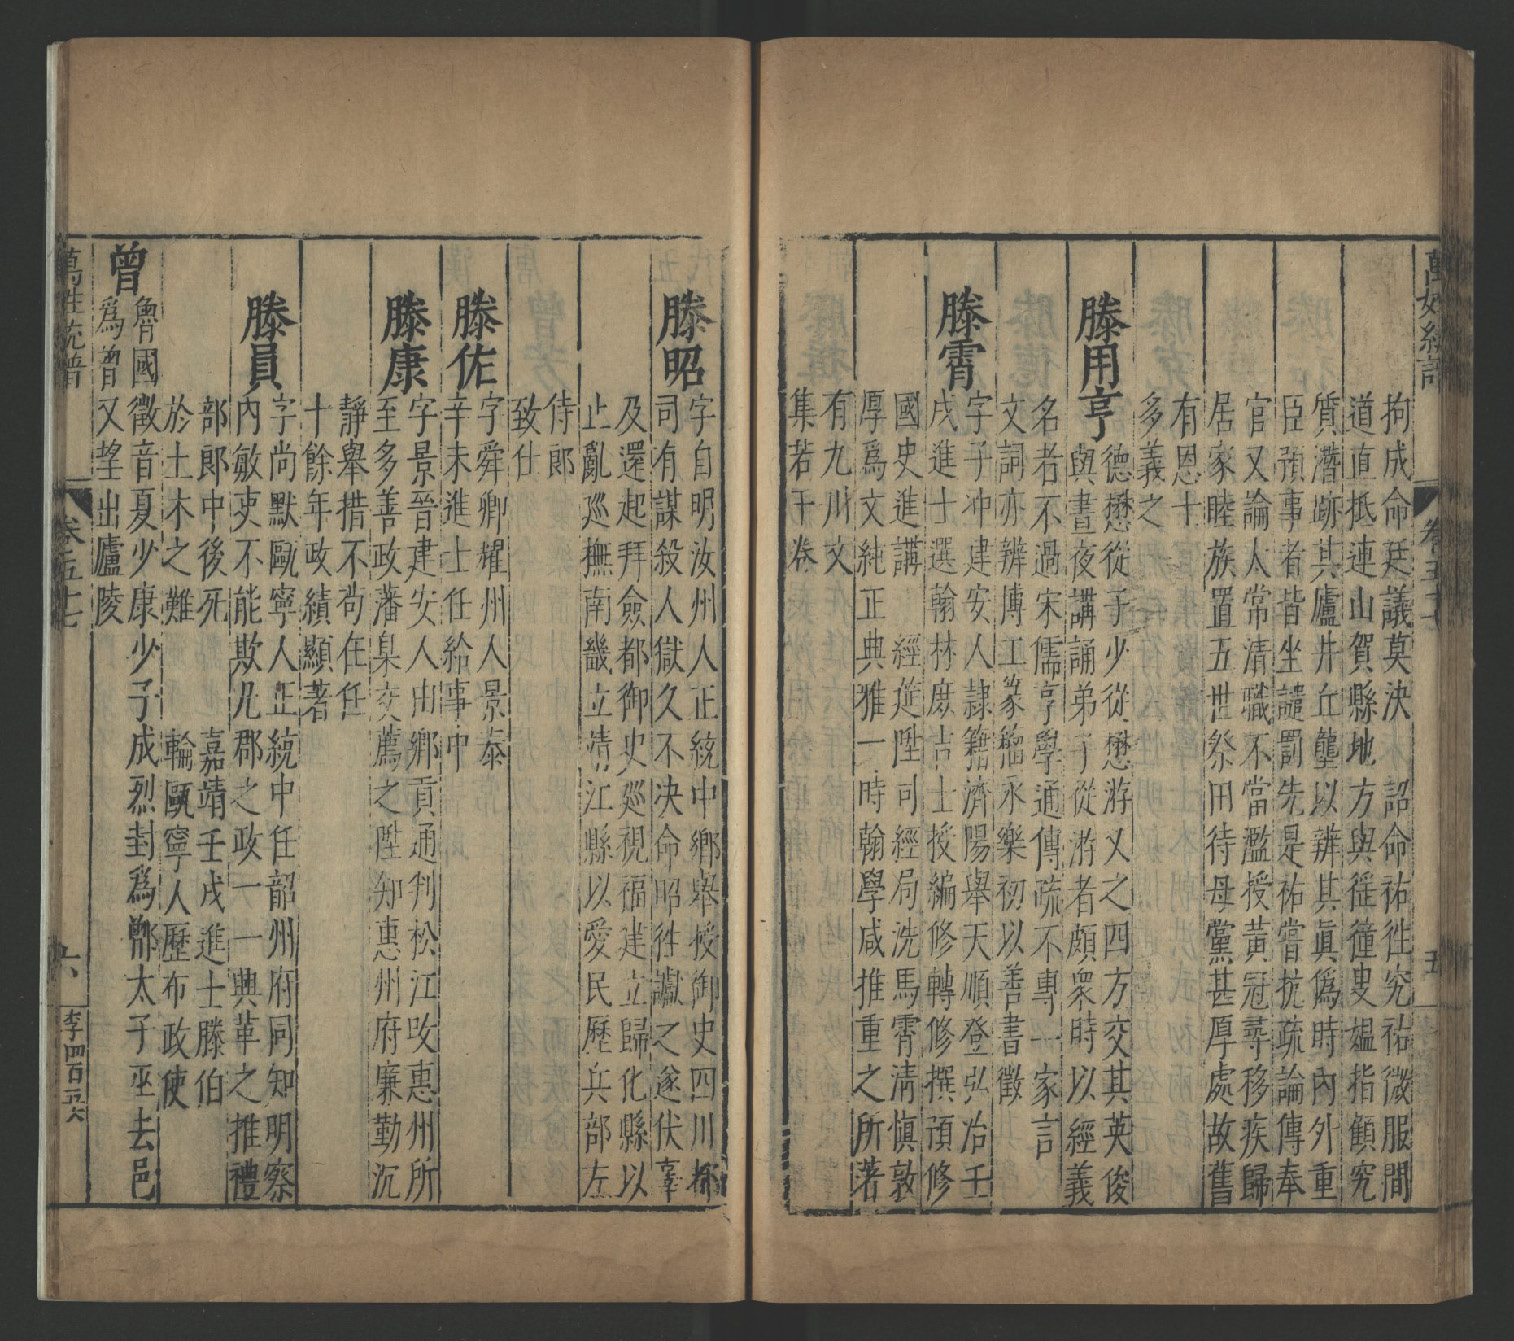 萬姓統譜 卷五十七 五
拘成命廷議莫決 詔命祐徃究祐微服間
道直抵連山賀縣地方與徭獞叟媼指顧究
質潛跡其廬井丘壟以辨其眞僞時內外重
臣預事者皆坐譴罰先是祐嘗抗疏論傳奉
官又論太常清職不當濫授黃冠尋移疾歸
居家睦族置五世祭田待母黨甚厚處故舊
有恩士
多義之
滕用亨
德懋從子少從懋游又之四方交其英俊
與晝夜講誦弟子從游者頗衆時以經義
名者不過宋儒亨學通傳疏不專一家言
文詞亦辨博工篆籀永樂初以善書徵
滕霄
字子冲建安人隷籍濟陽舉天順登弘治壬
戌進士選翰林庶吉士授編修轉修撰預修
國史進講 經筵陞司經局洗馬霄清愼敦
厚爲文純正典雅一時翰學咸推重之所著
有九川文
集若干卷
滕昭
字自明汝州人正統中鄉舉授御史四川都
司有謀殺人獄久不決命昭徃讞之遂伏辜
及還起拜僉都御史廵視福建立歸化縣以
止亂廵撫南畿立靖江縣以愛民歷兵部左
侍郎
致仕
滕佐
字舜卿耀州人景泰
辛未進士任給事中
滕康
字景晉建安人由鄉貢通判松江攺惠州所
至多善政藩臬交薦之陞知惠州府廉勤沉
靜舉措不苟在任
十餘年政績顯著
滕員
字尚默甌寧人正統中任韶州府同知明察
內敏吏不能欺凡郡之政一一興革之推禮
部郎中後死 嘉靖壬戌進士滕伯
於土木之難 輪甌寧人歷布政使
曾
魯國 徵音夏少康少子成烈封爲鄫太子巫去邑
爲曾 又望出廬陵
萬姓統譜 卷五十七 六 李四百五六